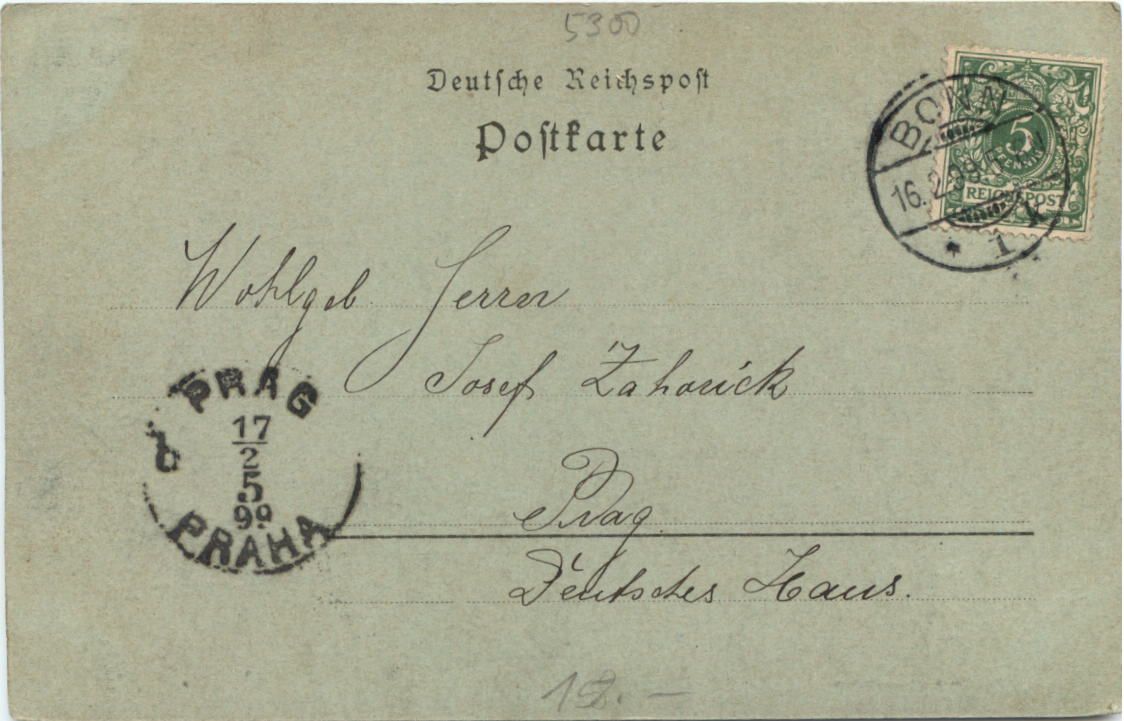 5300
Deutsche Reichspost
Postkarte
BONN
16.2.99.
* 1 k
5
PFENNIG
REICHSPOST
Wohlgeb. Herrn
Josef Zahorick
PRAG
17
2
5
99
b
PRAHA
Prag.
Deutsches Haus.
18.—